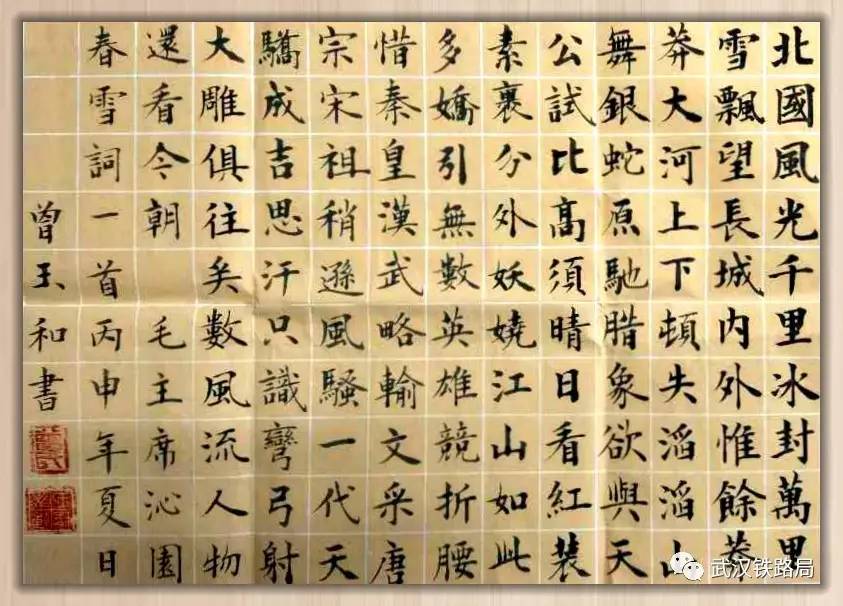 北國風光千里冰封萬里
雪飄望長城內外惟餘莽
莽大河上下頓失滔滔山
舞銀蛇原馳腊象欲與天
公試比高須晴日看紅裝
素裹分外妖嬈江山如此
多嬌引無數英雄競折腰
惜秦皇漢武略輸文采唐
宗宋祖稍遜風騷一代天
驕成吉思汗只識彎弓射
大雕俱往矣數風流人物
還看今朝 毛主席沁園
春雪詞一首丙申年夏日
曾玉和書
武汉铁路局